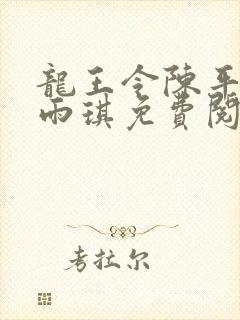 龍王令陳平
雨琪免費閱
考拉尔